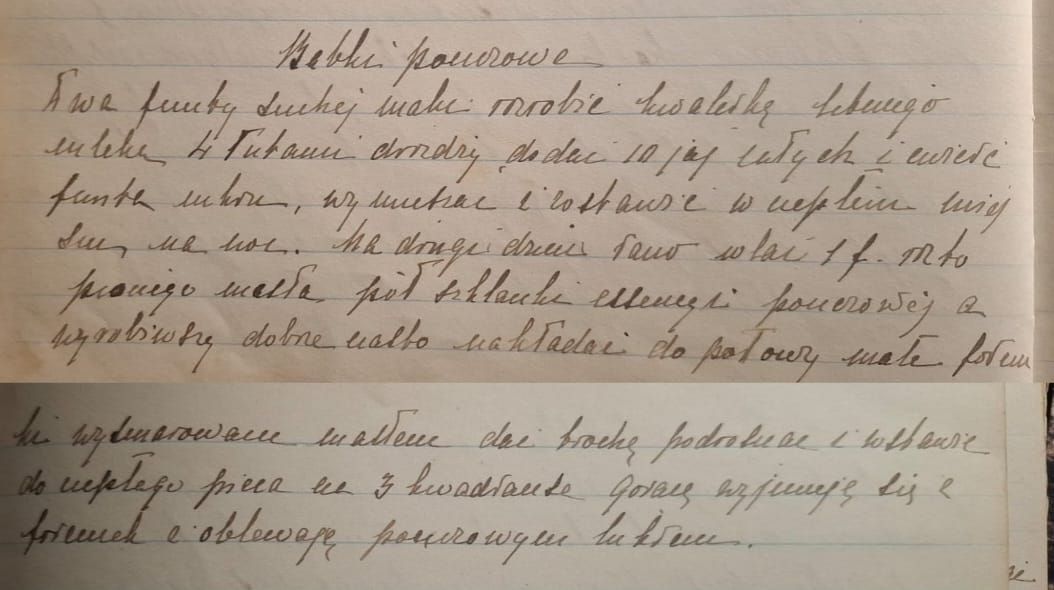 Babki ponczowe
Dwa funty suchej mąki rozrobić kwaterką letniego
mleka 4 łutami drożdży, dodać 10 jaj całych i ćwierć
funta cukru, wymieszać i zostawić w ciepłem miej
scu, na noc. Na drugi dzień rano wlać 1 f. rozto
pionego masła pół szklanki essencyi ponczowej a
wyrobiwszy dobrze ciasto nakładać do połowy małe forem
ki wysmarowane masłem dać trochę podrosnąć i wstawić
do ciepłego pieca na 3 kwadranse Gorące wyjmuję się z
foremek i oblewają ponczowym lukrem.